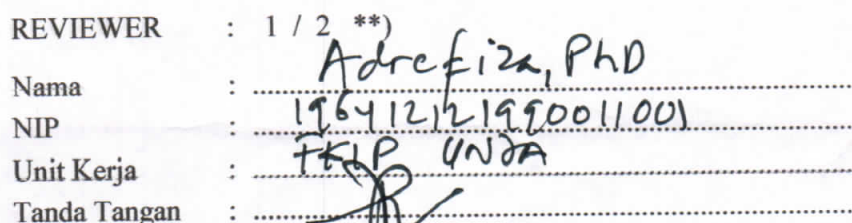 REVIEWER : 1 / 2 **)
Nama : Adrefiza, PhD
NIP : 196412121990011001
Unit Kerja : FKIP UNJA
Tanda Tangan :